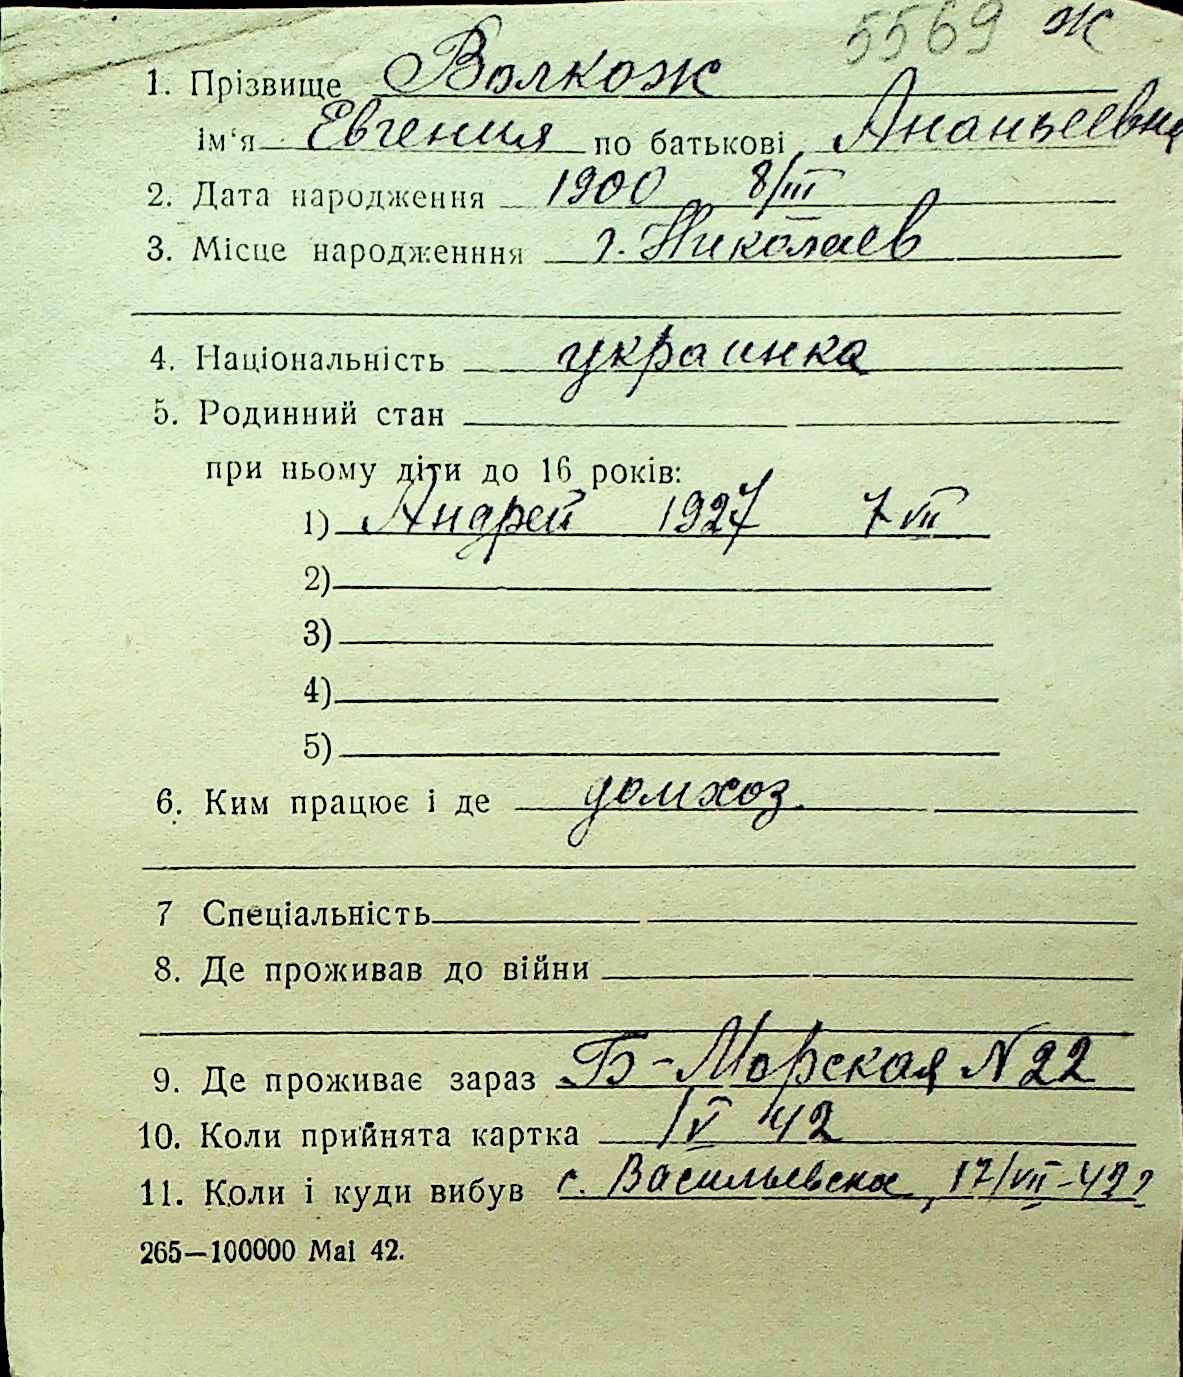 5569 Ж
1. Прізвище Волкож
ім'я Евгения по батькові Ананьеевна
2. Дата народження 1900 8/III
3. Місце народженння г. Николаев
4. Національність украинка
5. Родинний стан
при ньому діти до 16 років:
1) Андрей 1927 7 VII
2)
3)
4)
5)
6. Ким працює і де домхоз.
7 Спеціальність
8. Де проживав до війни
9. Де проживає зараз Б-Морская N 22
10. Коли прийнята картка /V 42
11. Коли і куди вибув с. Васильевка, 17/VII-42 г
265—100000 Mai 42.